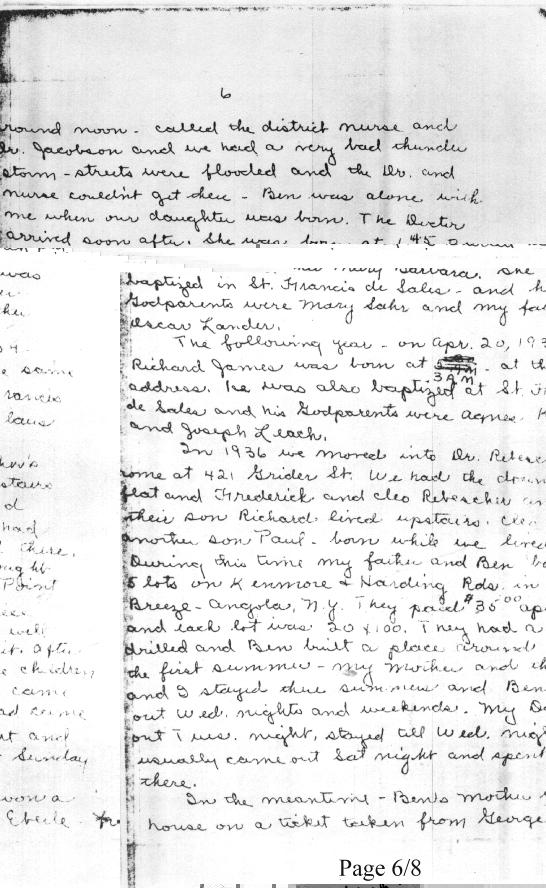 6
round noon - called the district nurse and
Dr. Jacobson and we had a very bad thunder
storm - streets were flooded and the Dr. and
nurse couldn't get there - Ben was alone with
me when our daughter was born. The Doctor
arrived soon after. She was born at 1:45
Mary Barbara. She
baptized in St. Francis de Sales - and h
Godparents were Mary Sahr and my fa
Oscar Lander.
The following year - on Apr. 20, 193
Richard James was born at 3 AM - at th
address. He was also baptized at St. F
de Sales and his Godparents were Agnes
and Joseph Leach.
In 1936 we moved into Dr. Rebesc
ome at 421 Grider St. We had the down
flat and Frederick and Cleo Rebescher an
their son Richard lived upstairs. Cleo
another son Paul - born while we lived
During this time my father and Ben bo
5 lots on Kenmore & Harding Rds. in
Breeze - Angola, N.Y. They paid $35.00 ap
and each lot was 20 x 100. They had a
drilled and Ben built a place around
the first summer - my Mother and th
and I stayed there summers and Ben
out Wed. nights and weekends. My Da
out Tues. night, stayed till Wed. nigh
usually came out Sat night and spent
there.
In the meantime - Ben's Mother
house on a ticket taken from George
was
er
ther
e same
rancis
laus
her's
stairs
d
had
there.
ought
Point
well
it. After
e children
came
ad came
ut and
Sunday
won a
Eberle
Page 6/8